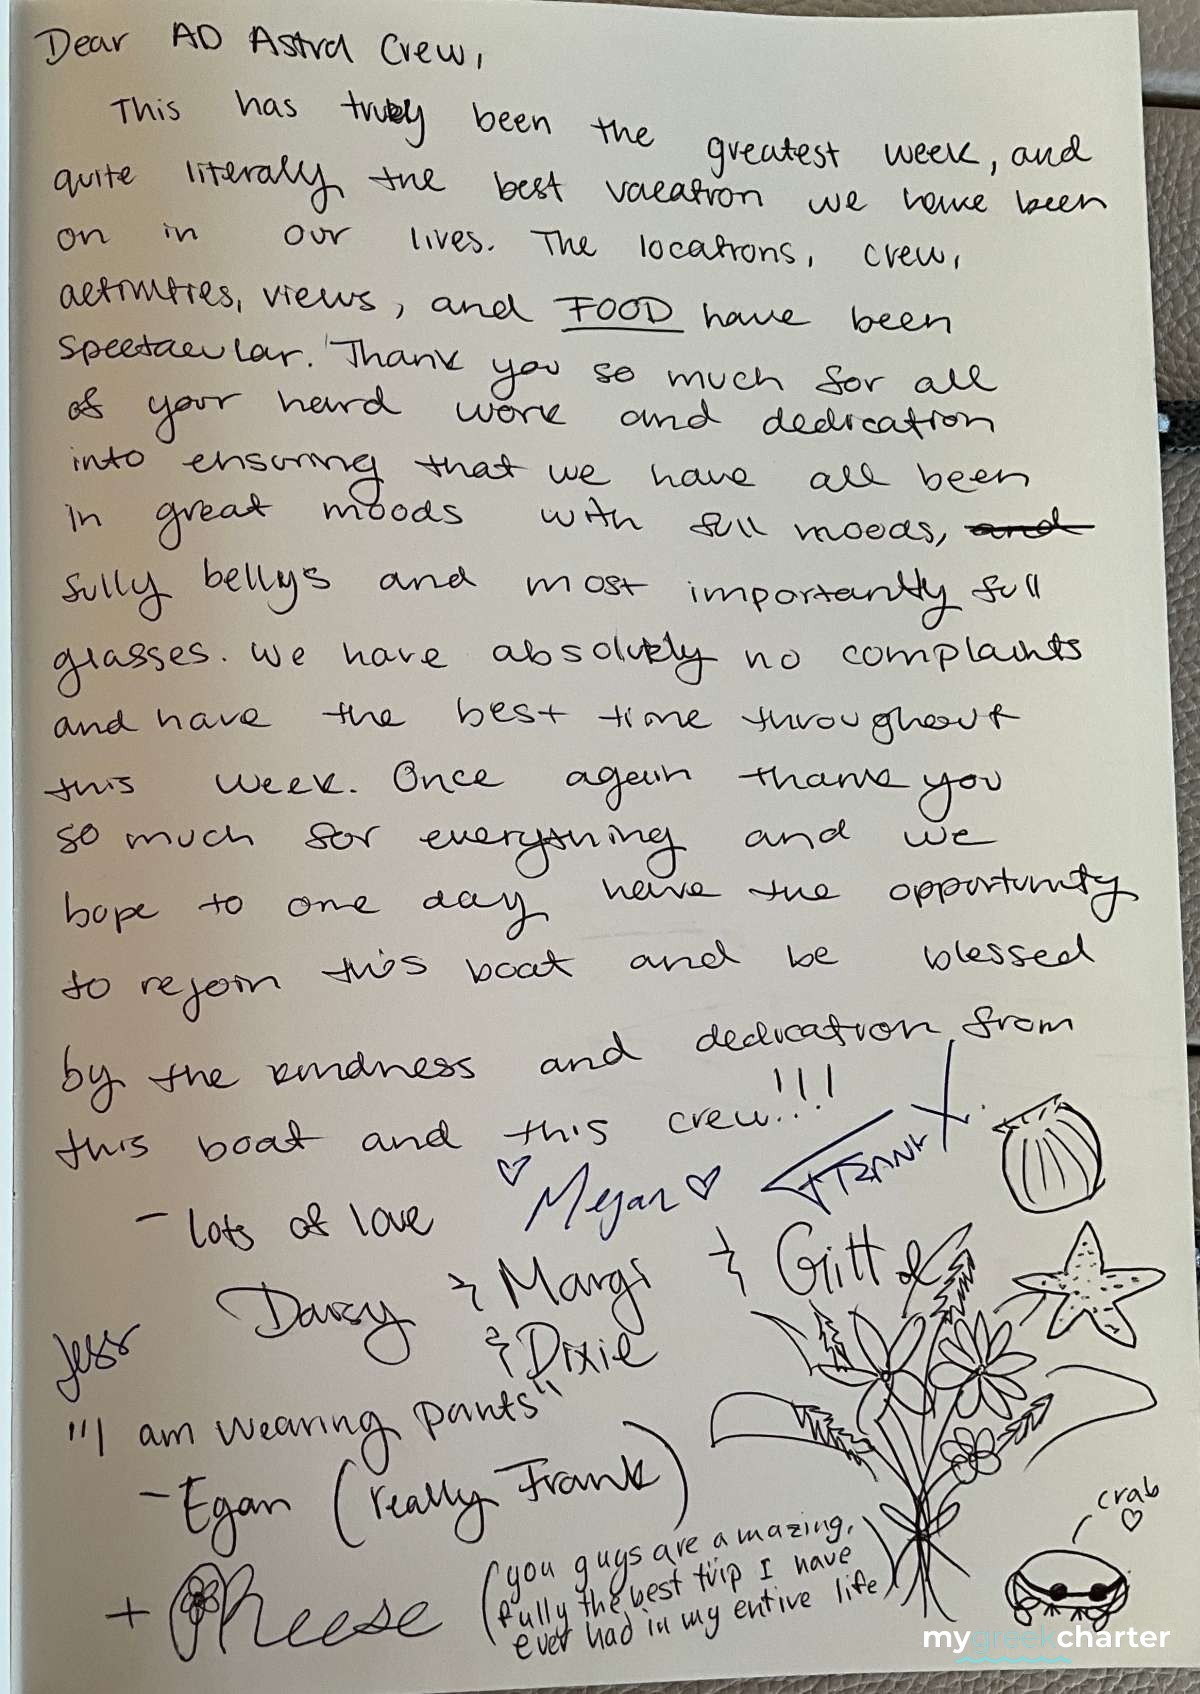 Dear AD Astra Crew,
This has truely been the greatest week, and
quite literally the best vacation we have been
on in our lives. The locations, crew,
activities, views, and FOOD have been
spectacular. Thank you so much for all
of your hard work and dedication
into ensuring that we have all been
in great moods with full moods, and
fully bellys and most importantly full
glasses. We have absolutely no complaints
and have the best time throughout
this week. Once again thank you
so much for everything and we
hope to one day have the opportunity
to rejoin this boat and be blessed
by the kindness and dedication from
this boat and this crew!!!
- lots of love ♡ Megan ♡ FRANK
Daisy & Margi &
Jess & Dixie
"I am wearing pants"
- Egan (really Frank)
crab
♡
+ Rheese (you guys are amazing,
fully the best trip I have
ever had in my entire life)
mygreekcharter